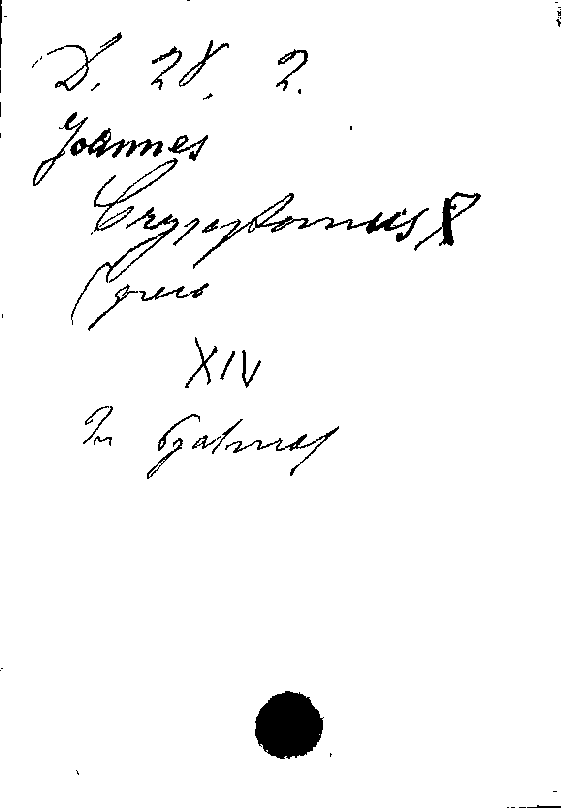 D. 28. 2.
Joannes
Crysostomus
(greco
XIV
In Psalmos